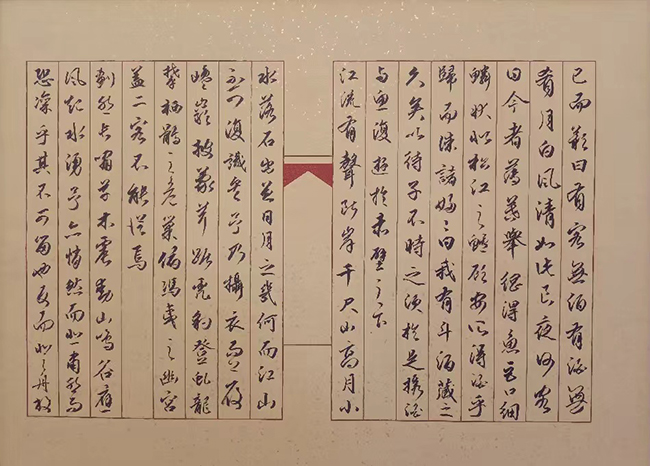 已而歎曰有客無酒有酒無
肴月白風清如此良夜何客
曰今者薄暮舉網得魚巨口細
鱗狀似松江之鱸顧安所得酒乎
歸而謀諸婦婦曰我有斗酒藏之
久矣以待子不時之須於是攜酒
與魚復遊於赤壁之下
江流有聲斷岸千尺山高月小
水落石出曾日月之幾何而江山
不可復識矣予乃攝衣而上履
巉巖披蒙茸踞虎豹登虬龍
攀栖鶻之危巢俯馮夷之幽宮
蓋二客不能從焉
劃然長嘯草木震動山鳴谷應
風起水湧予亦悄然而悲肅然而
恐凜乎其不可留也反而登舟放